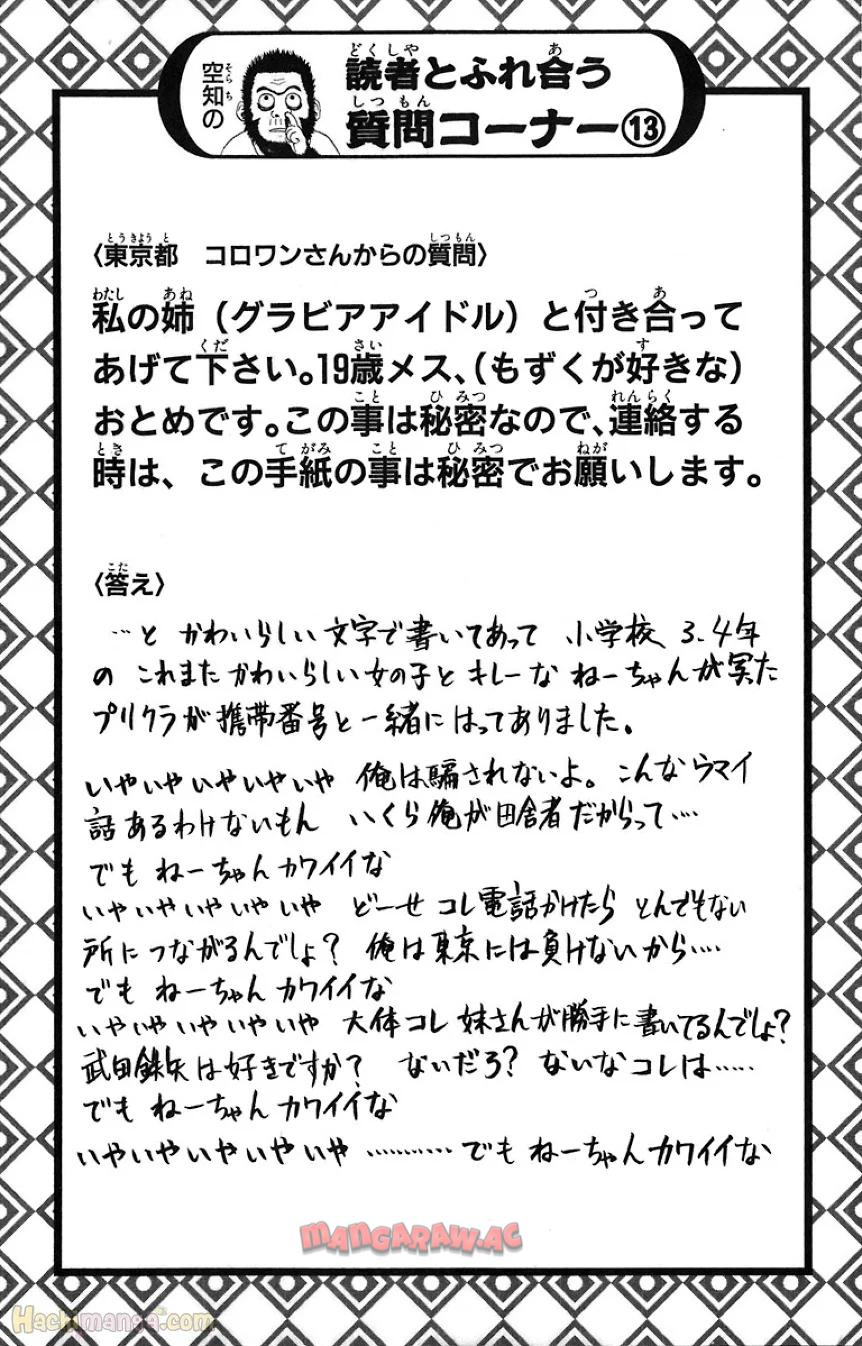 空知の
読者とふれ合う
質問コーナー⑬
〈東京都 コロワンさんからの質問〉
私の姉(グラビアアイドル)と付き合って
あげて下さい。19歳メス、(もずくが好きな)
おとめです。この事は秘密なので、連絡する
時は、この手紙の事は秘密でお願いします。
〈答え〉
…と かわいらしい文字で書いてあって 小学校 3、4年
の これまたかわいらしい女の子と キレーな ねーちゃんが写た
プリクラが携帯番号と一緒にはってありました。
いやいやいやいやいや 俺は騙されないよ。こんなウマイ
話あるわけないもん いくら俺が田舎者だからって…
でも ねーちゃんカワイイな
いやいやいやいやいや どーせ コレ電話かけたら とんでもない
所につながるんでしょ? 俺は東京には負けないから……
でも ねーちゃんカワイイな
いやいやいやいやいや 大体コレ 妹さんが勝手に書いてるんでしょ?
武田鉄矢は好きですか? ないだろ? ないなコレは……
でも ねーちゃんカワイイな
いやいやいやいやいや …………でも ねーちゃんカワイイな
MANGARAW.AC
Hachimanga.com